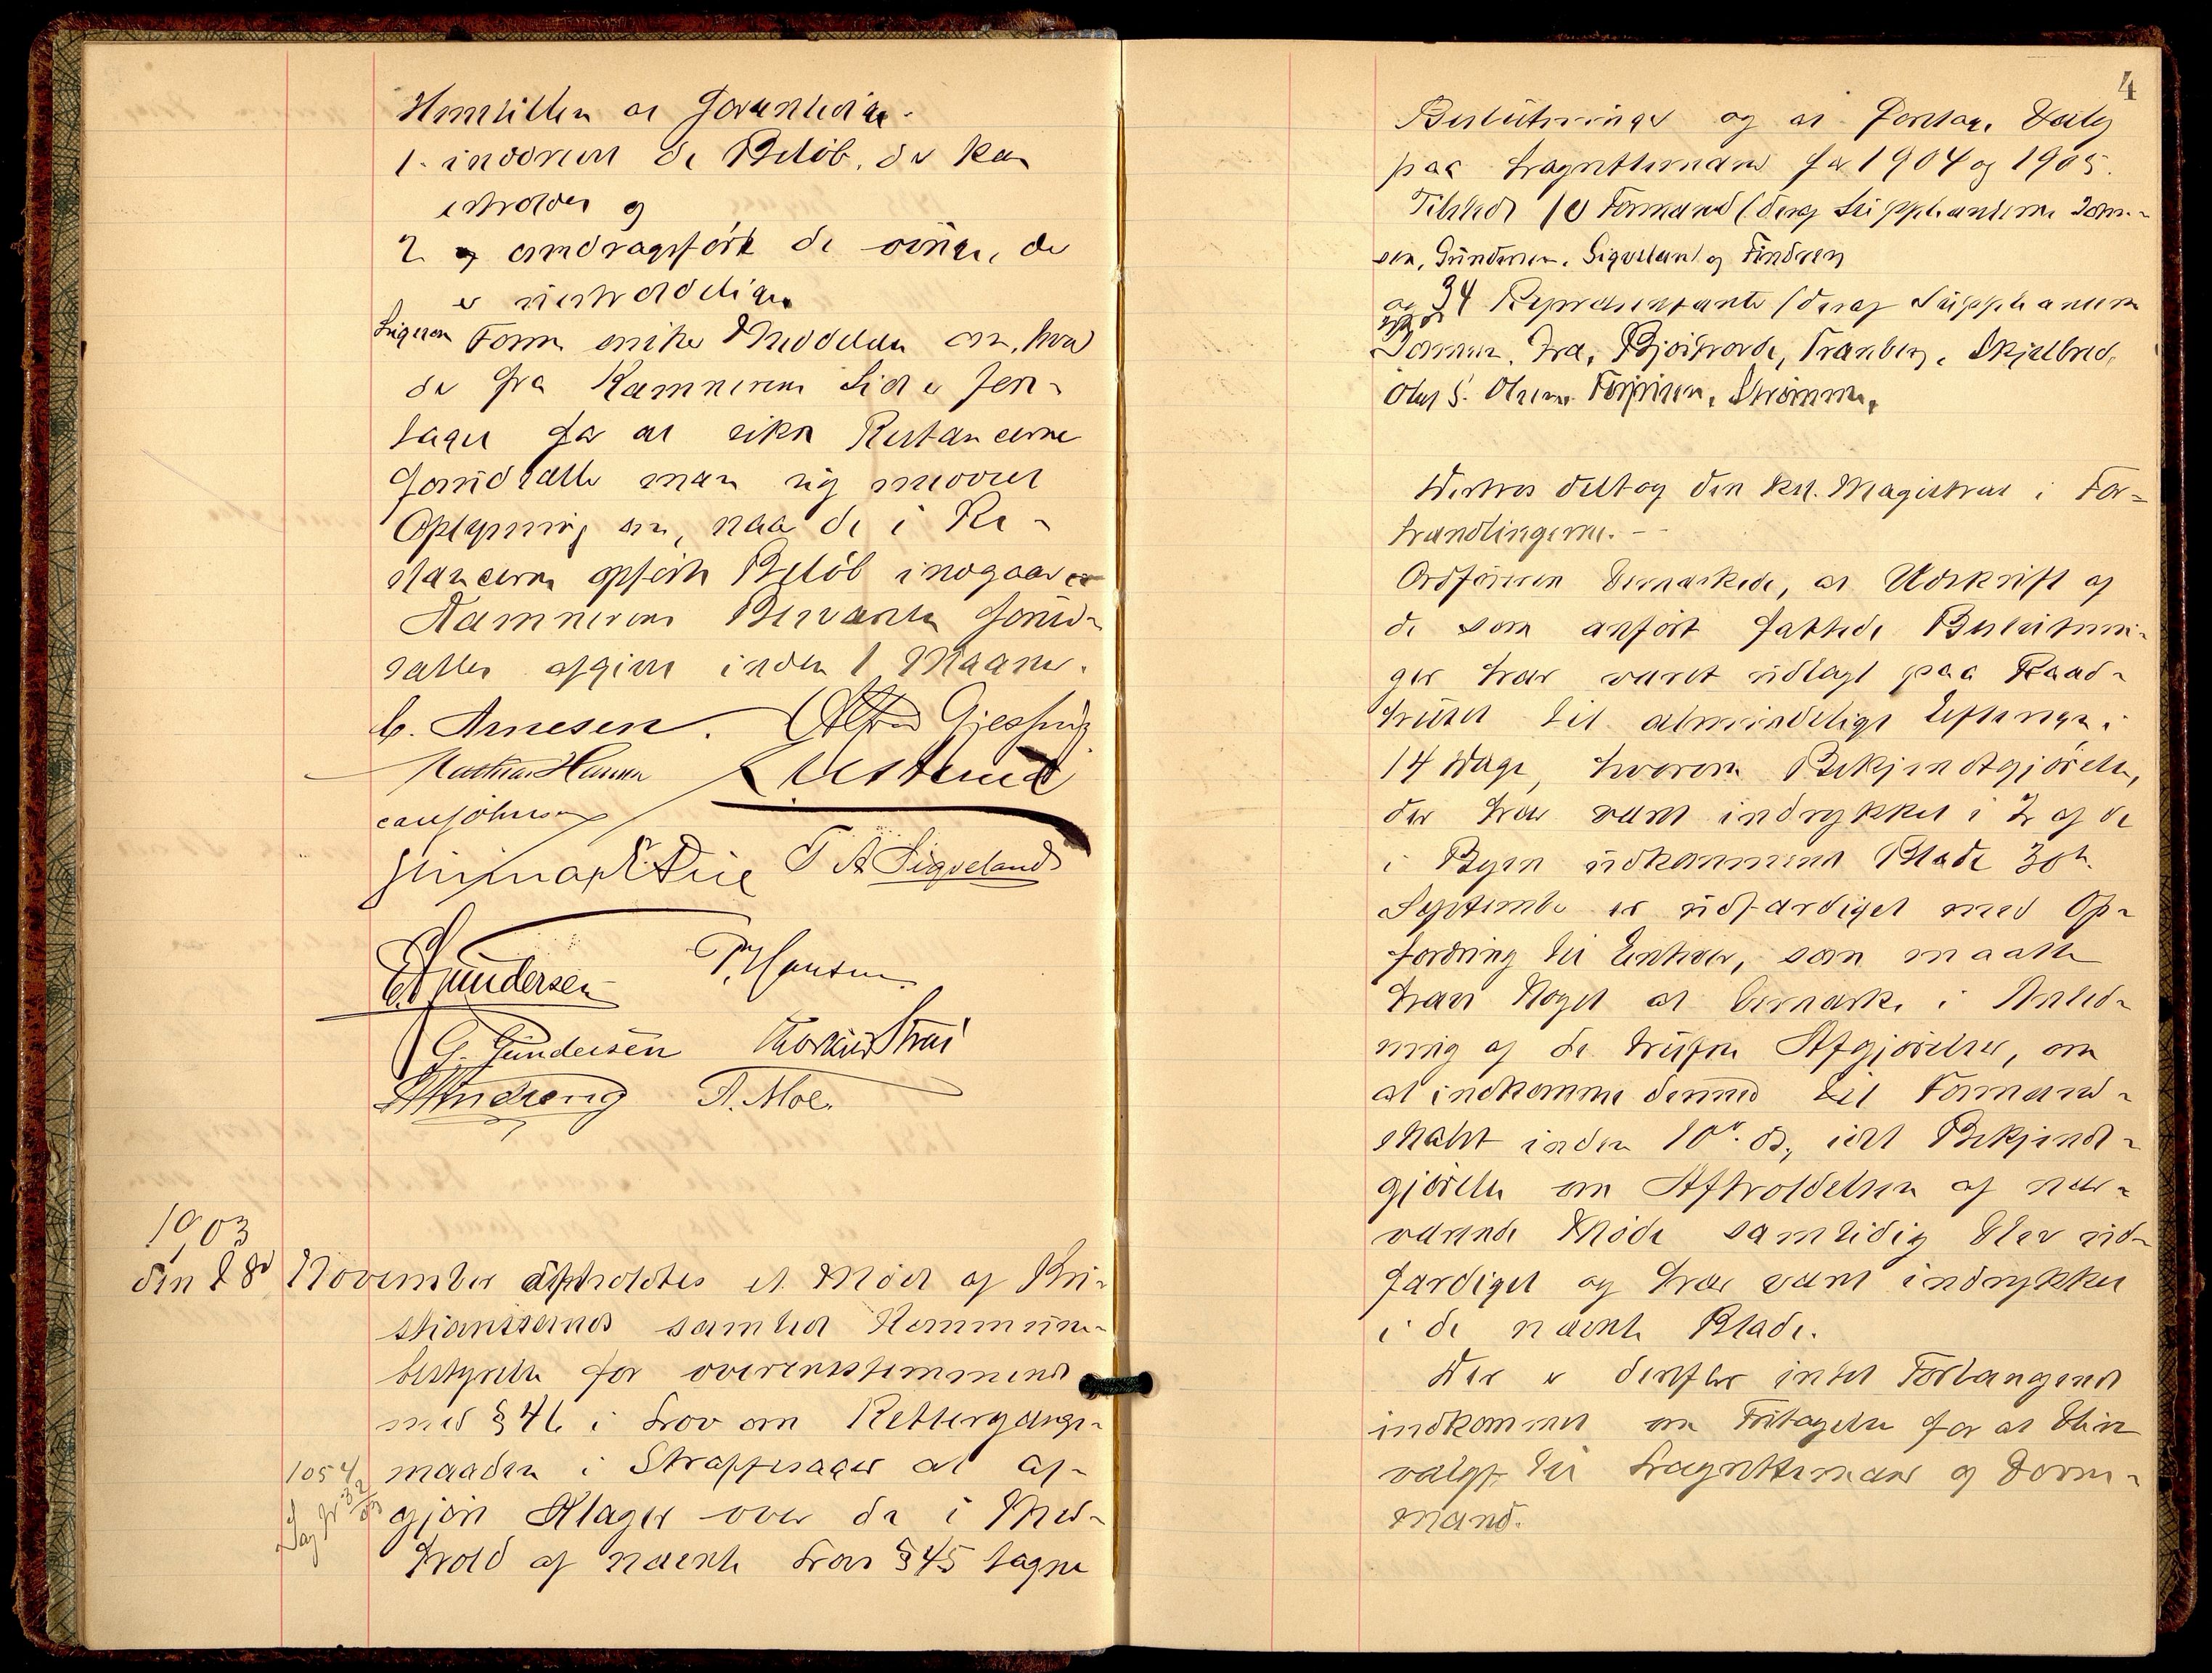 Henstillen at foranledige
1. inddrevet de Beløb, der kan
erholdes og
2 og omdragsført de øvrige, der
er uerholdelige
Ligesom Form. ønsker Meddelelse om, hvad
der fra Kæmnerens Side er fore-
taget for at sikre Restancerne
forudsætter man sig meddelt
Oplysning om, naar de i Re-
stancerne opførte Beløb indgaar
Kæmnerens Besvarelse forud-
sættes afgivet inden 1 Maaned.
C. Arnesen. Alfred Gjessing
Mathias Hansen
Carl Johnsen
T A Sigveland
E. Gundersen P. Hansen
G. Gundersen
A. Moe.
1903
den 18de November afholdtes et Møde af Kri-
stianssands samlede Kommune-
bestyrelse for overensstemmende
med § 46 i Lov om Rettergangs-
1054 maaden i Straffesager at af-
Sag Nr 32/03 gjøre Klager over de i Med-
hold af nævnte Lovs § 45 tagne
4
Beslutninger og at foretage Valg
paa Lagrettemænd for 1904 og 1905.
Tilstede 10 Formænd (deraf Suppleanterne Jom-
sen, Gundersen, Sigveland og Findreng
og 34 Repræsentanter (deraf Suppleanterne
Bjørhovde, Tranberg, Skjelbred,
Oluf S. Olsen, Strømme,
Desuden deltog den kst. Magistrat i For-
handlingerne. -
Ordføreren bemærkede, at Udskrift af
de som anført fattede Beslutnin-
ger har været udlagt paa Raad-
huset til almindeligt Eftersyn i
14 Dage, hvorom Bekjendtgjørelse,
der har været indrykket i 2 af de
i Byen udkommende Blade 30te
September er udfærdiget med Op-
fordring til Enhver, som maatte
have Noget at bemærke i Anled-
ning af de trufne Afgjørelser, om
at indkomme dermed til Formand-
skabet inden 10de ds., idet Bekjendt-
gjørelse om Afholdelsen af nær-
værende Møde samtidig blev ud-
færdiget og har været indrykket
i de nævnte Blade.
Der er derefter intet Forlangende
indkommet om Fritagelse for at blive
valgt til Lagrettemænd og Doms-
mænd.